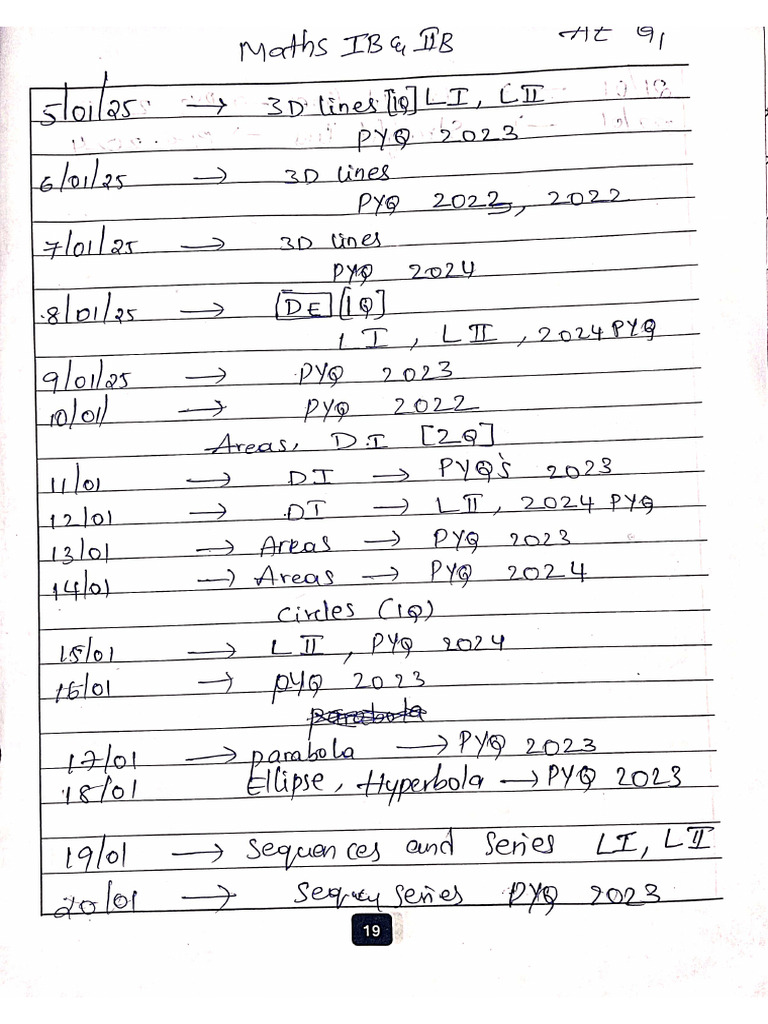 Maths IB & IIB
At 9,
5/01/25 → 3D lines [1Q] LI, LII
PYQ 2023
6/01/25 → 3D lines
PYQ 2022, 2022
7/01/25 → 3D lines
PYQ 2024
8/01/25 → [DE] [1Q]
LI, LII, 2024 PYQ
9/01/25 → PYQ 2023
10/01/ → PYQ 2022
Areas, DI [2Q]
11/01 → DI → PYQ's 2023
12/01 → DI → LII, 2024 PYQ
13/01 → Areas → PYQ 2023
14/01 → Areas → PYQ 2024
Circles (1Q)
15/01 → LII, PYQ 2024
16/01 → PYQ 2023
parabola
17/01 → parabola → PYQ 2023
18/01 Ellipse, Hyperbola → PYQ 2023
19/01 → Sequences and Series LI, LII
20/01 → series PYQ 2023
19